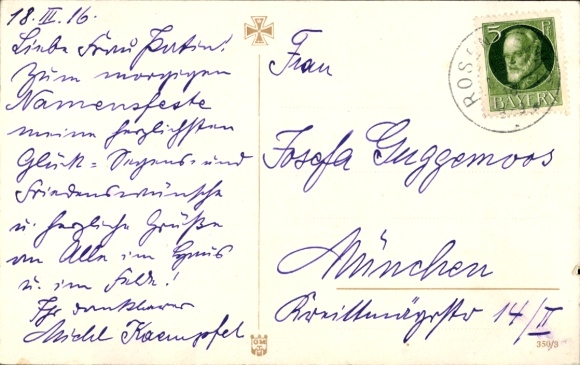 18. III. 16.
Liebe Frau Patin!
Zum morgigen
Namensfeste
meine herzlichsten
Glück-, Segens- und
Friedenswünsche
u. herzliche Grüße
an Alle im Haus
u. im Felde!
Ihr dankbarer
Michl Kaempfel
Frau
Josefa Guggemoos
München
Kreittmayrstr 14/II
5 Pf
BAYERN
ROS
350/3